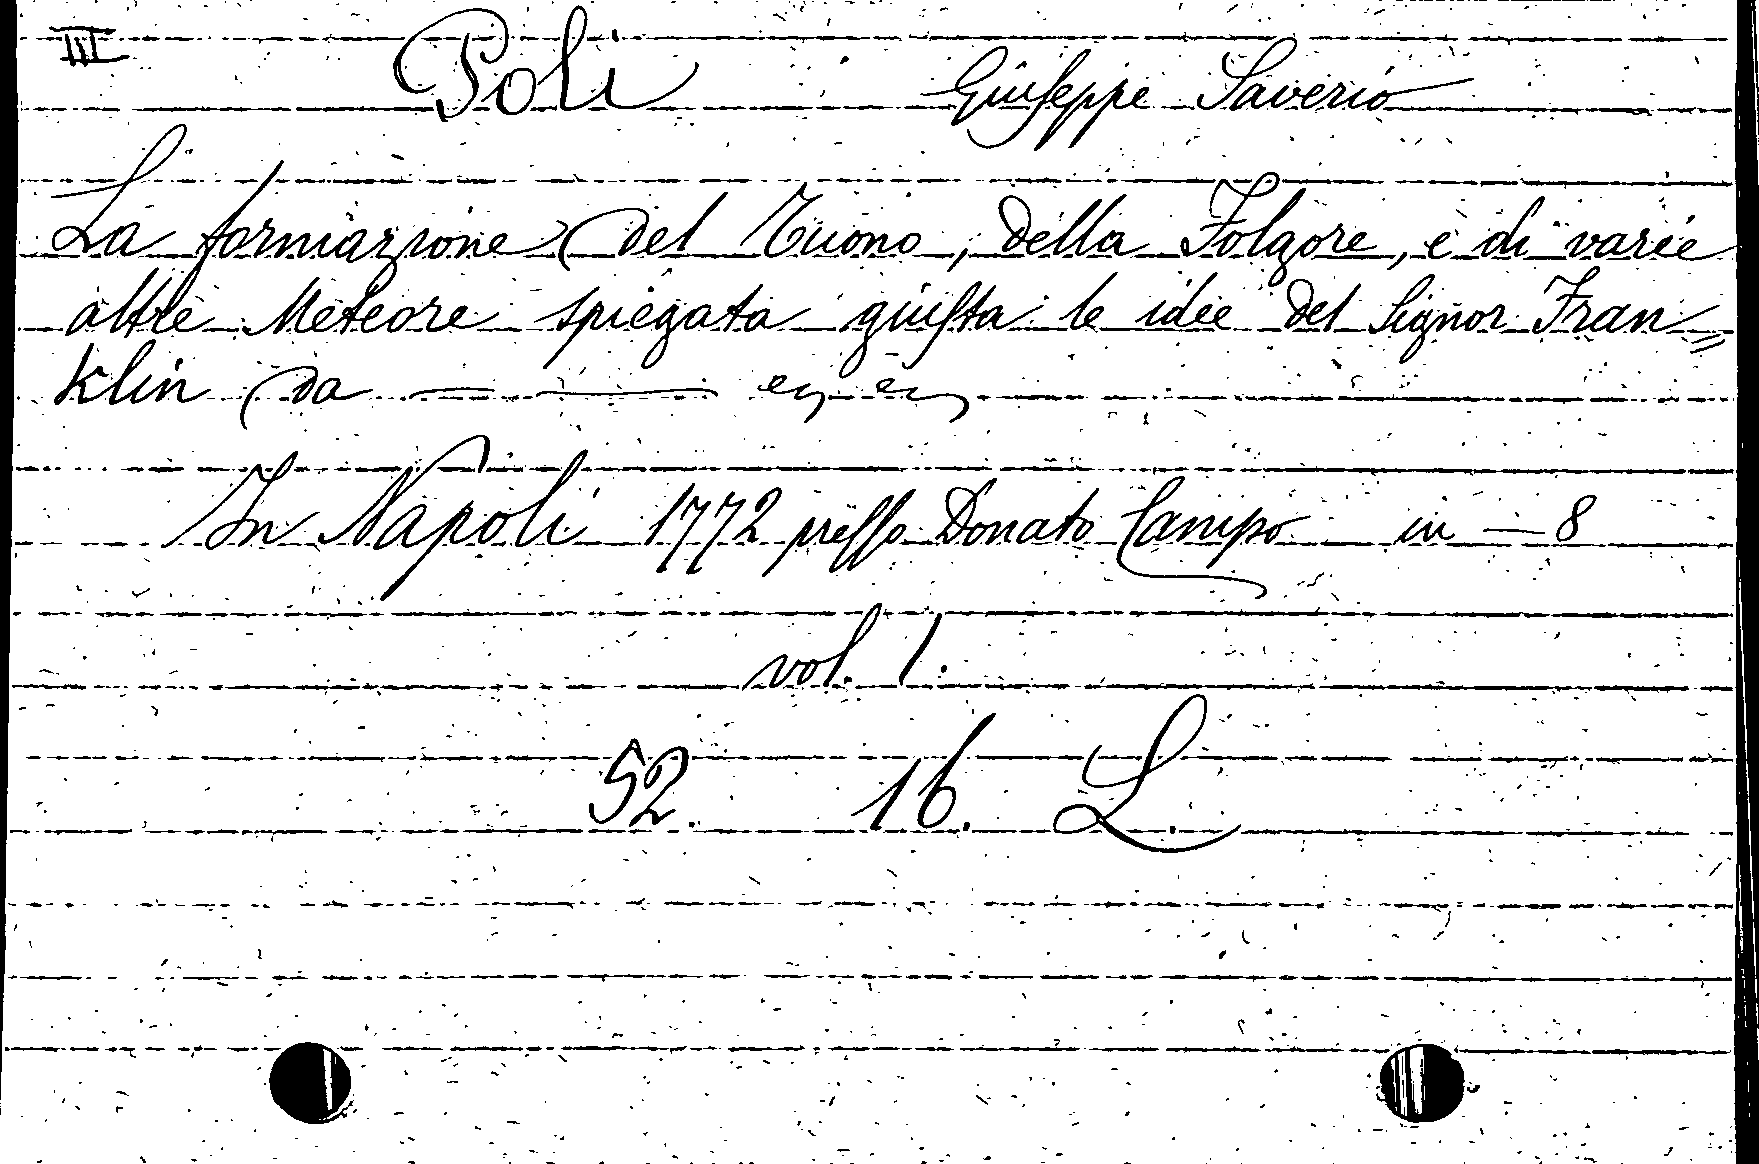 III Poli Giuseppe Saverio
La formazione del Tuono, della Folgore, e di varie
altre Meteore spiegata giusta le idee del Signor Fran=
klin da —— —— ec, ec,
In Napoli 1772 presso Donato Campo in — 8
vol. 1.
52. 16. L.